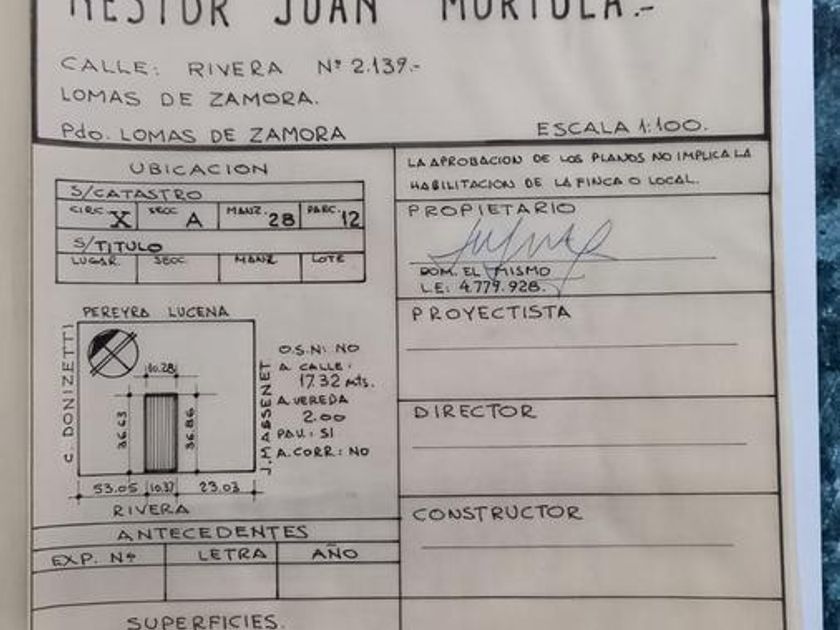 NESTOR JUAN MORTOLA.-
CALLE: RIVERA Nº 2.139.-
LOMAS DE ZAMORA.
Pdo. LOMAS DE ZAMORA
ESCALA 1:100.
UBICACION
S/CATASTRO
CIRC. X SECC A MANZ. 28 PARC. 12
S/TITULO
LUGAR. SECC MANZ LOTE
PEREYRA LUCENA
C. DONIZETTI
J. MASSENET
10.28
36.63
36.86
53.05 10.37 23.03
RIVERA
O.S.N: NO
A. CALLE:
17.32 mts.
A. VEREDA
2.00
PAV.: SI
A. CORR: NO
ANTECEDENTES
EXP. Nº LETRA AÑO
SUPERFICIES.
LA APROBACION DE LOS PLANOS NO IMPLICA LA
HABILITACION DE LA FINCA O LOCAL.
PROPIETARIO
DOM. EL MISMO
L.E: 4.779.928.
PROYECTISTA
DIRECTOR
CONSTRUCTOR